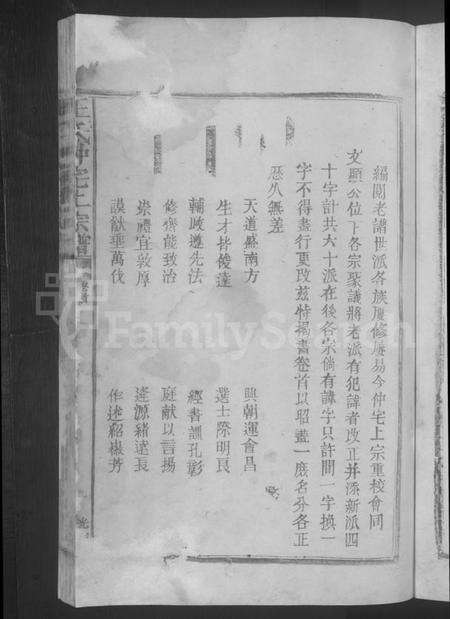 編閱老譜世派各族屢修屢易今仲宅上宗重校會同
文顯公位下各宗聚議將老派有犯諱者改正并添新派四
十字計共六十派在後各宗倘有諱字只許間一字換一
字不得盡行更改茲特揭書卷首以昭畫一庶名分各正
歷久無差
天道盛南方 興朝運會昌
生才皆俊達 選士際明良
輔歧遵先法 經書讚孔彰
修齊能致治 庭献以言揚
崇禮宜敦厚 逢源緒遠長
謨猷垂萬代 作述紹榘芳
王氏仲宅上宗譜
FamilySearch